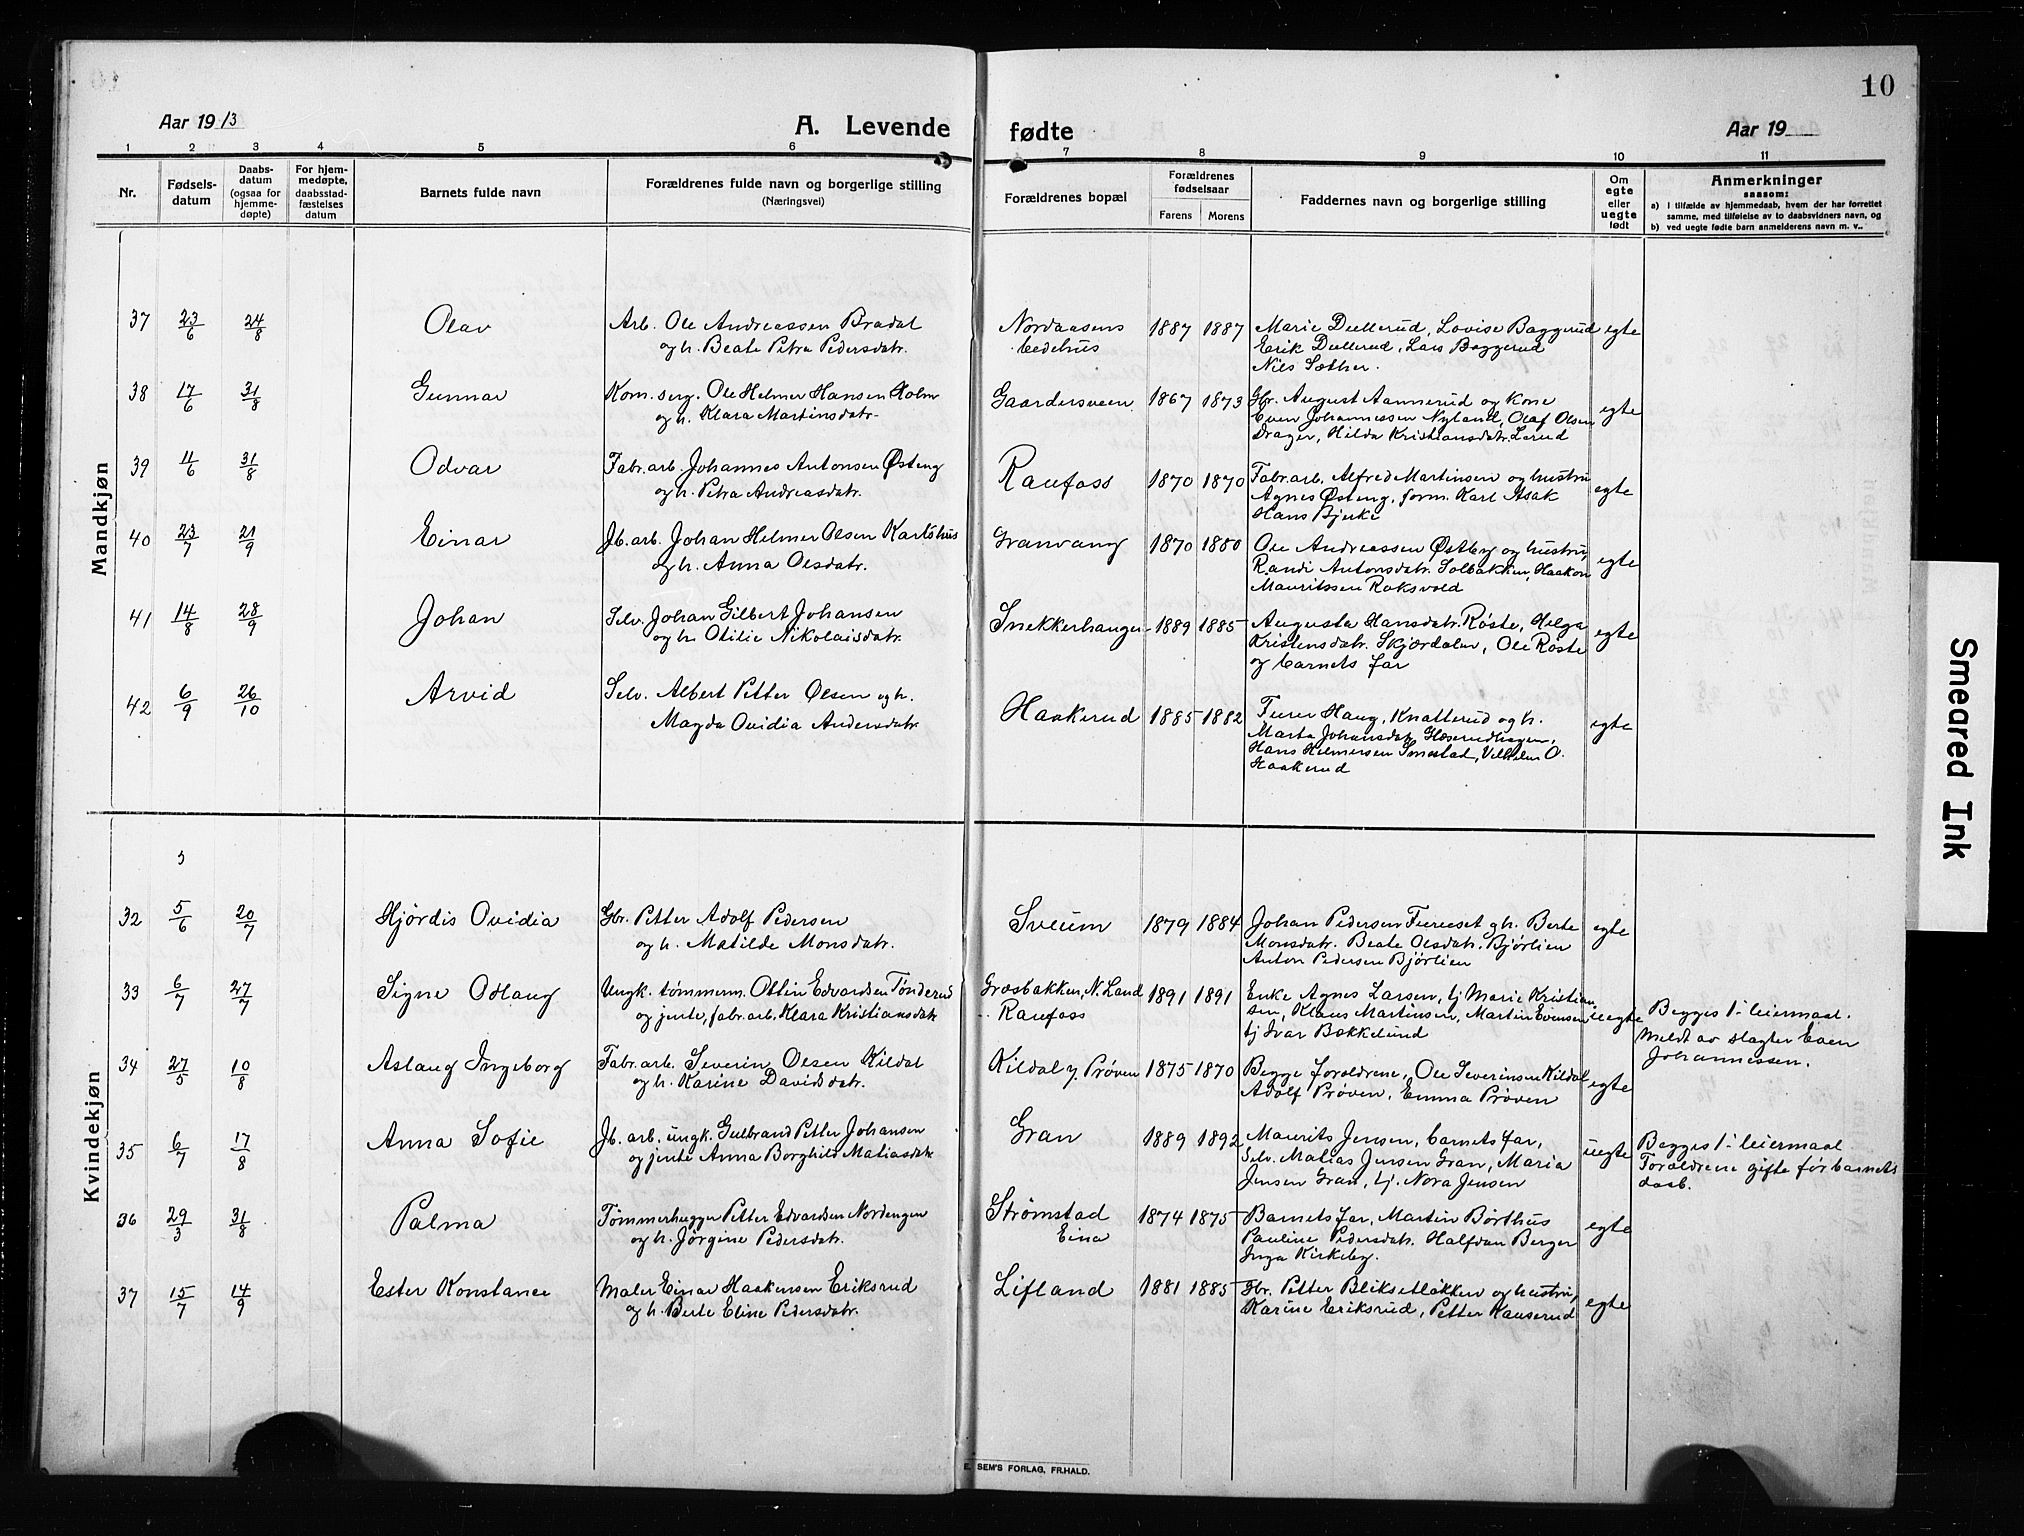 10
Aar 1913
A. Levende fødte
Aar 19
1 2 3 4 5 6 7 8 9 10 11
Nr.
Fødsels-
datum
Daabs-
datum
(ogsaa for
hjemme-
døpte)
For hjem-
medøpte,
daabsstad-
fæstelses
datum
Barnets fulde navn
Forældrenes fulde navn og borgerlige stilling
(Næringsvei)
Forældrenes bopæl
Forældrenes
fødselsaar
Farens Morens
Faddernes navn og borgerlige stilling
Om
egte
eller
uegte
født
Anmerkninger
saasom:
a) I tilfælde av hjemmedaab, hvem der har forrettet
samme, med tilføielse av to daabsvidners navn, og
b) ved uegte fødte barn anmelderens navn m. v..
Mandkjøn
37 23/6 24/8 Olav
Arb. Ole Andreassen Bradal
og h. Beate Petra Pedersdatr.
Nordaasens
bedehus
1887 1887
Marie Dullerud, Lovise Baggerud
Erik Dullerud, Lars Baggerud
Nils Sæther.
egte
38 17/6 31/8 Gunnar
Kom. serg. Ole Helmer Hansen Holm
og h. Klara Martinsdatr.
Gaardersveen
1867 1873
Gbr. August Aannerud og Kone
Even Johannessen Nyland, Olaf Olsen
Drager, Hilda Kristiansdatr. Lerud
egte
39 11/6 31/8 Odvar
Fabr. arb. Johannes Antonsen Østeng
og h. Petra Andreasdatr.
Raufoss
1870 1870
Fabr. arb. Alfred Martinsen og hustru
Agnes Østeng, form. Karl Asak
Hans Bjerke
egte
40 23/7 21/9 Einar
Jb. arb. Johan Helmer Olsen Karlshus
og h. Anna Olsdatr.
Granvang
1870 1880
Ole Andreassen Østby og hustru,
Randi Antonsdatr. Solbakken, Haakon
Mauritssen Roksvold
egte
41 14/8 28/9 Johan
Selv. Johan Gilbert Johansen
og h. Otilie Nikolaisdatr.
Snekkerhangen
1889 1885
Augusta Hansdatr. Røste, Helga
Kristensdatr. Skjærdalen, Ole Røste
og barnets far
egte
42 6/9 26/10 Arvid
Selv. Albert Petter Olsen og h.
Magda Ovidia Andersdatr.
Haakerud
1885 1882
Turer Haug, Knatterud og h.
Marta Johansdatr. Glæserudhagen,
Hans Helmersen Smestad, Vilhelm O.
Haakerud
egte
Kvindekjøn
32 5/6 20/7 Hjördis Ovidia
Gbr. Petter Adolf Pedersen
og h. Matilde Monsdatr.
Sveum
1879 1884
Johan Pedersen Furuset g h. Berte
Monsdatr. Beate Olsdatr. Bjørlien
Anton Pedersen Bjørlien
egte
33 6/7 27/7 Signe Odlaug
Ungk. tømmerm. Ottin Edvardsen Tønderud
og jente, fabr. arb. Klara Kristiansdatr
Græsbakken, N. Land
Raufoss
1891 1891
Enke Agnes Larsen, tj Marie Kristian-
sen, Klaus Martinsen, Martin Evensen
tj Ivar Bakkelund
uegte
Begges 1. leiermaal.
Meldt av slagter Even
Johannessen.
34 27/5 10/8 Aslaug Ingeborg
Fabr. arb. Severin Olsen Kildal
og h. Karine Davidsdatr.
Kildal u. Prøven
1875 1870
Begge foreldrene, Ole Severinsen Kildal
Adolf Prøven, Emma Prøven
egte
35 6/7 17/8 Anna Sofie
Jb. arb. ungk. Gulbrand Petter Johansen
og jente Anna Borghild Matiasdatr
Gran
1889 1892
Maurits Jensen, barnets far,
Selv. Matias Jensen Gran, Maria
Jensen Gran, tj. Nora Jensen
uegte
Begges 1. leiermaal
Foreldrene gifte før barnets
daab.
36 29/3 31/8 Palma
Tømmerhugger Petter Edvardsen Nordengen
og h. Jørgine Pedersdatr.
Strømstad
Eina
1874 1875
Barnets far, Martin Børthus
Pauline Pedersdatr. Halfdan Berger
Inga Kirkeby.
egte
37 15/7 14/9 Ester Konstance
Maler Einar Haakensen Eriksrud
og h. Berte Eline Pedersdatr.
Lifland
1881 1885
Gbr. Petter Bliksetløkken og hustru,
Karine Eriksrud, Petter Kauserud
egte
E. SEM'S FORLAG, FR.HALD.
Smeared Ink